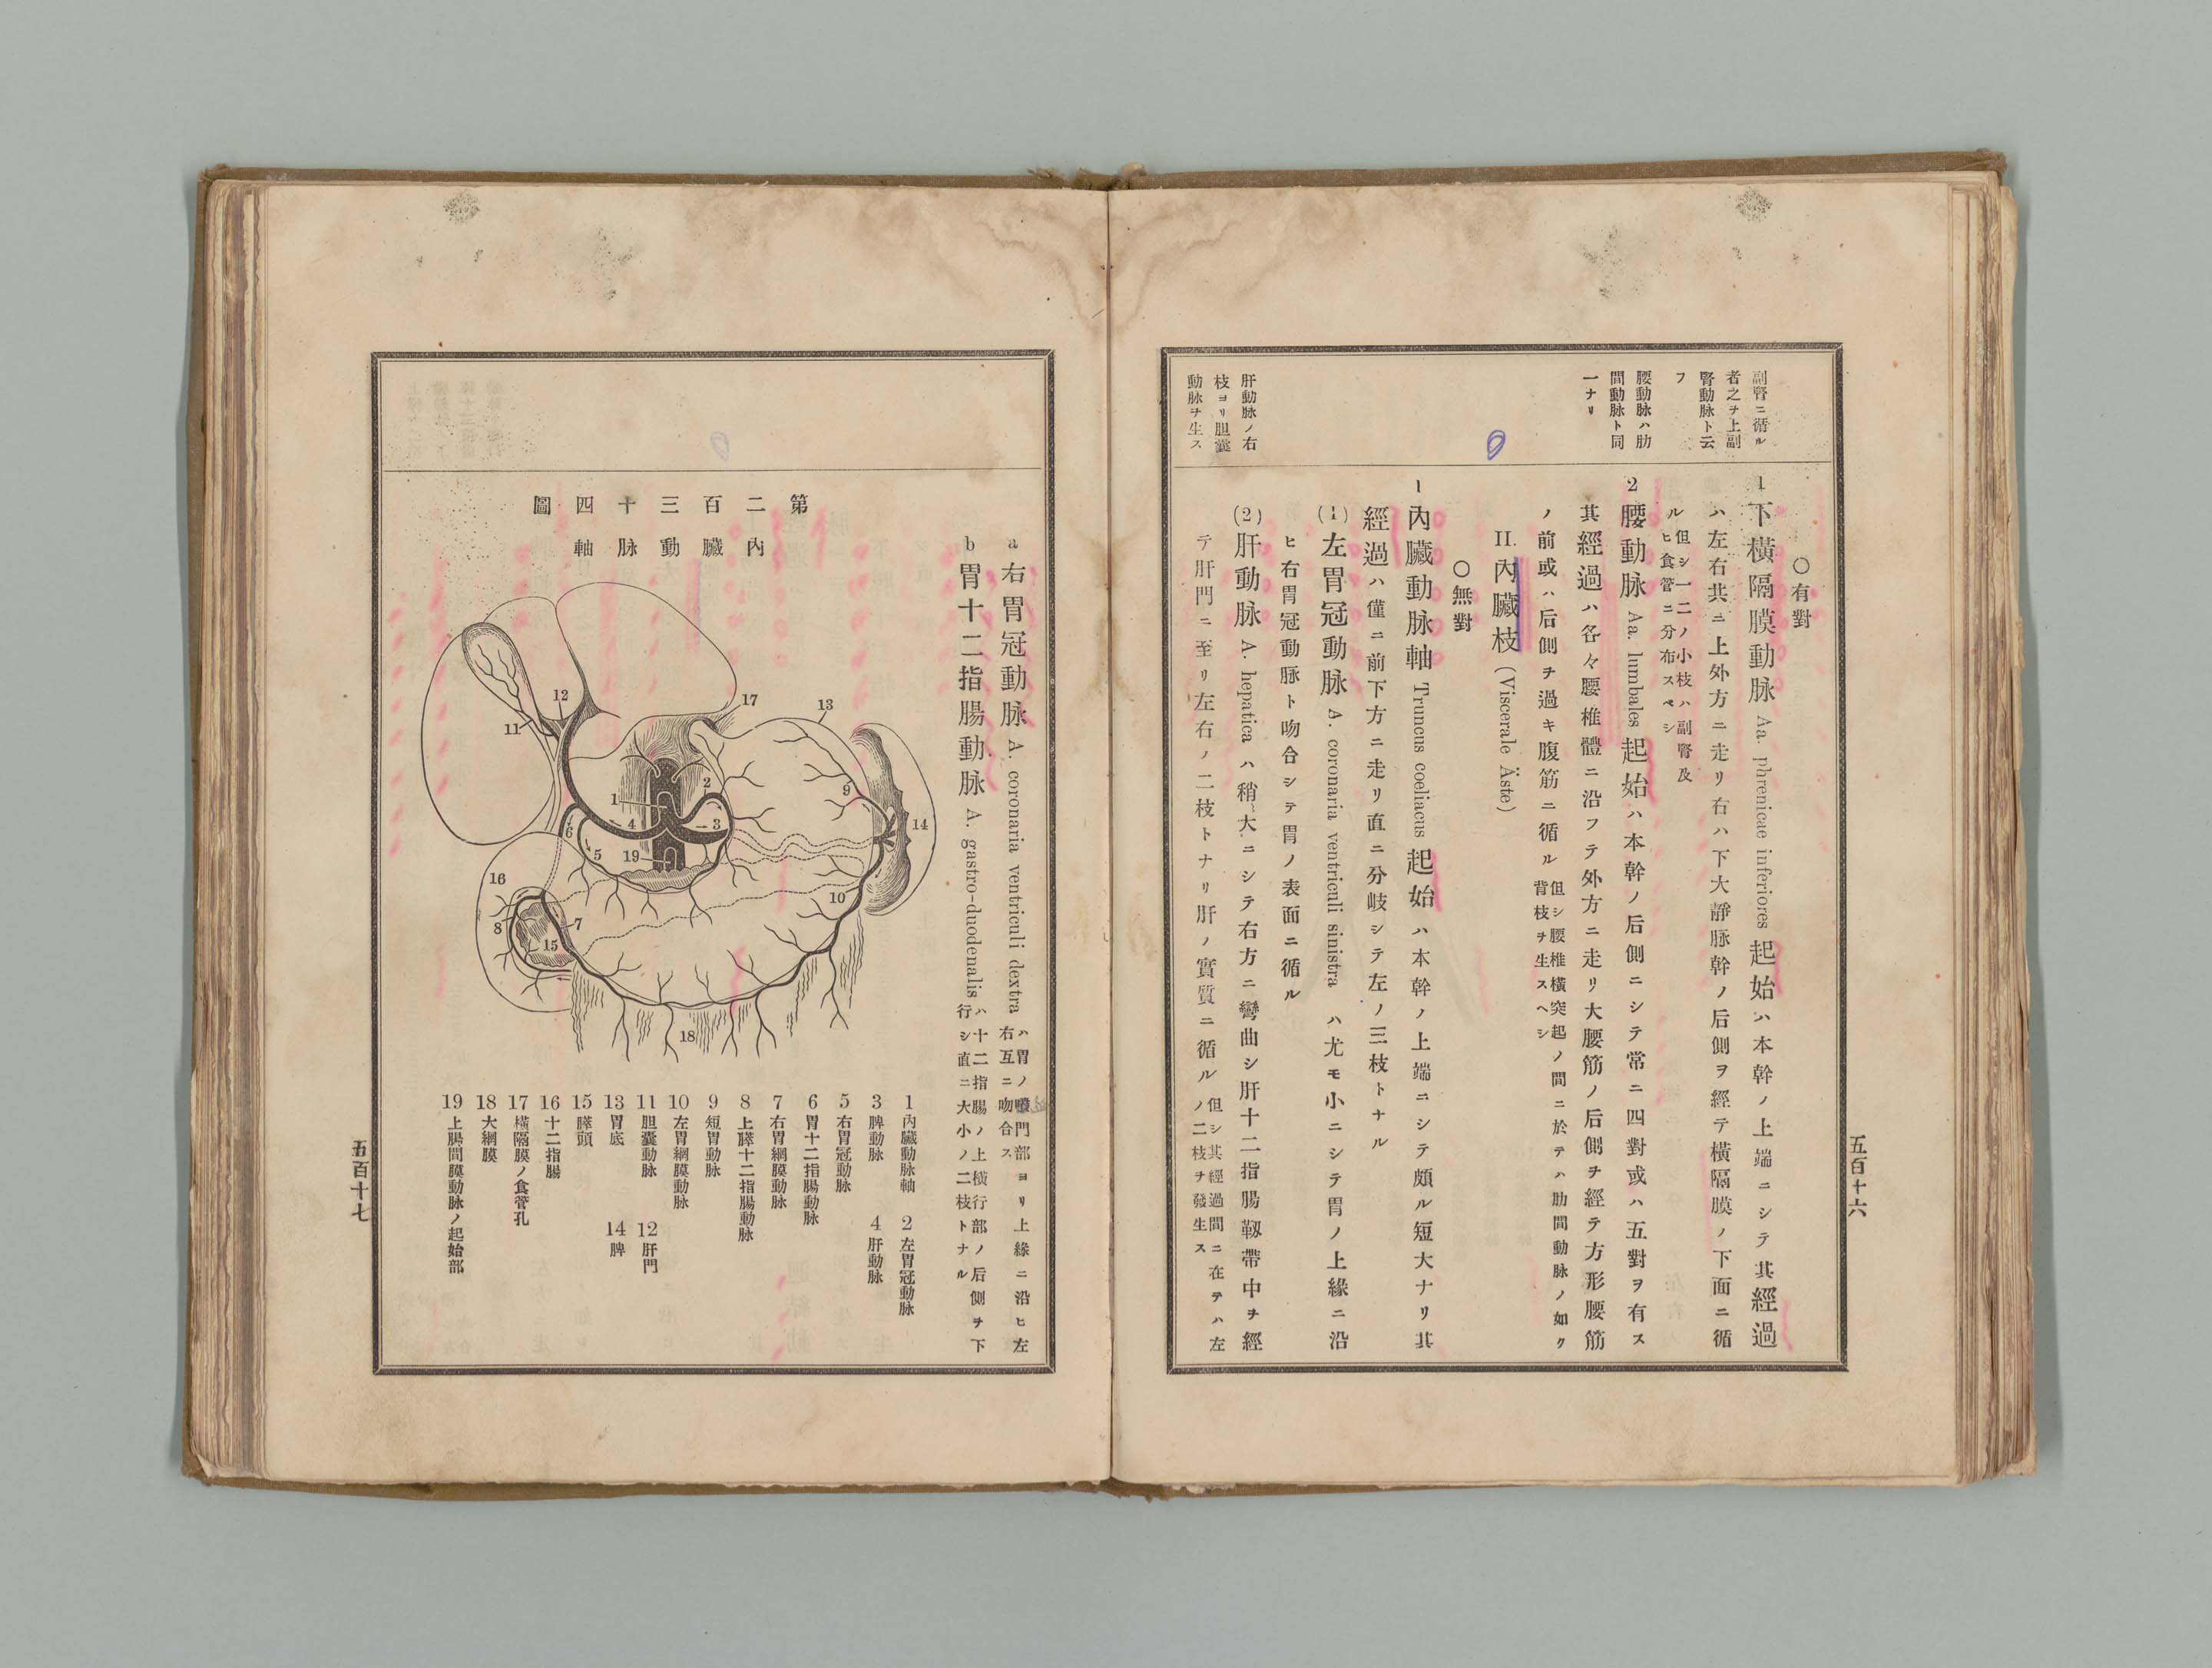 副腎ニ循ル
者之ヲ上副
腎動脉ト云
フ
腰動脉ハ肋
間動脉ト同
一ナリ
肝動脉ノ右
枝ヨリ胆囊
動脉ヲ生ス
〇有對
1下橫隔膜動脉 Aa. phrenicae inferiores 起始ハ本幹ノ上端ニシテ其經過
ハ左右共ニ上外方ニ走リ右ハ下大靜脉幹ノ后側ヲ經テ橫隔膜ノ下面ニ循
ル但シ一二ノ小枝ハ副腎及
ヒ食管ニ分布スベシ
2腰動脉 Aa. lumbales 起始ハ本幹ノ后側ニシテ常ニ四對或ハ五對ヲ有ス
其經過ハ各々腰椎體ニ沿フテ外方ニ走リ大腰筋ノ后側ヲ經テ方形腰筋
ノ前或ハ后側ヲ過キ腹筋ニ循ル但シ腰椎橫突起ノ間ニ於テハ肋間動脉ノ如ク
背枝ヲ生スヘシ
II. 內臟枝 (Viscerale Äste)
〇無對
1內臟動脉軸 Truncus coeliacus 起始ハ本幹ノ上端ニシテ頗ル短大ナリ其
經過ハ僅ニ前下方ニ走リ直ニ分岐シテ左ノ三枝トナル
(1)左胃冠動脉 A. coronaria ventriculi sinistra ハ尤モ小ニシテ胃ノ上緣ニ沿
ヒ右胃冠動脉ト吻合シテ胃ノ表面ニ循ル
(2)肝動脉 A. hepatica ハ稍大ニシテ右方ニ彎曲シ肝十二指腸靱帶中ヲ經
テ肝門ニ至リ左右ノ二枝トナリ肝ノ實質ニ循ル但シ其經過間ニ在テハ左
ノ二枝ヲ發生ス
五百十六
a右胃冠動脉 A. coronaria ventriculi dextra ハ胃ノ門部ヨリ上緣ニ沿ヒ左
右互ニ吻合ス
b胃十二指腸動脉 A. gastro-duodenalis ハ十二指腸ノ上橫行部ノ后側ヲ下
行シ直ニ大小ノ二枝トナル
第二百三十四圖
內臟動脉軸
17
13
12
11
2
9
1
4
3
14
6
5
19
16
10
7
8
15
18
1內臟動脉軸 2左胃冠動脉
3脾動脉 4肝動脉
5右胃冠動脉
6胃十二指腸動脉
7右胃網膜動脉
8上膵十二指腸動脉
9短胃動脉
10左胃網膜動脉
11胆囊動脉 12肝門
13胃底 14脾
15膵頭
16十二指腸
17橫隔膜ノ食管孔
18大網膜
19上腸間膜動脉ノ起始部
五百十七